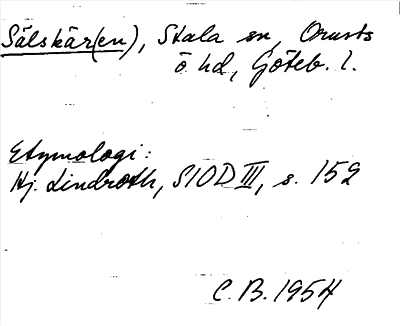 Sälskär(en), Stala sn, Orusts
ö hd, Göteb. l.
Etymologi:
Hj. Lindroth, SIOD III, s. 152
C.B. 1954